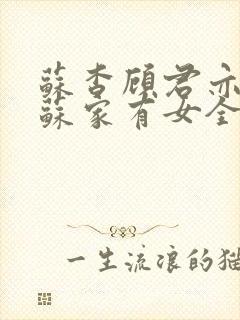 蘇杏顧君亦
蘇家有女全
一生流浪的猫